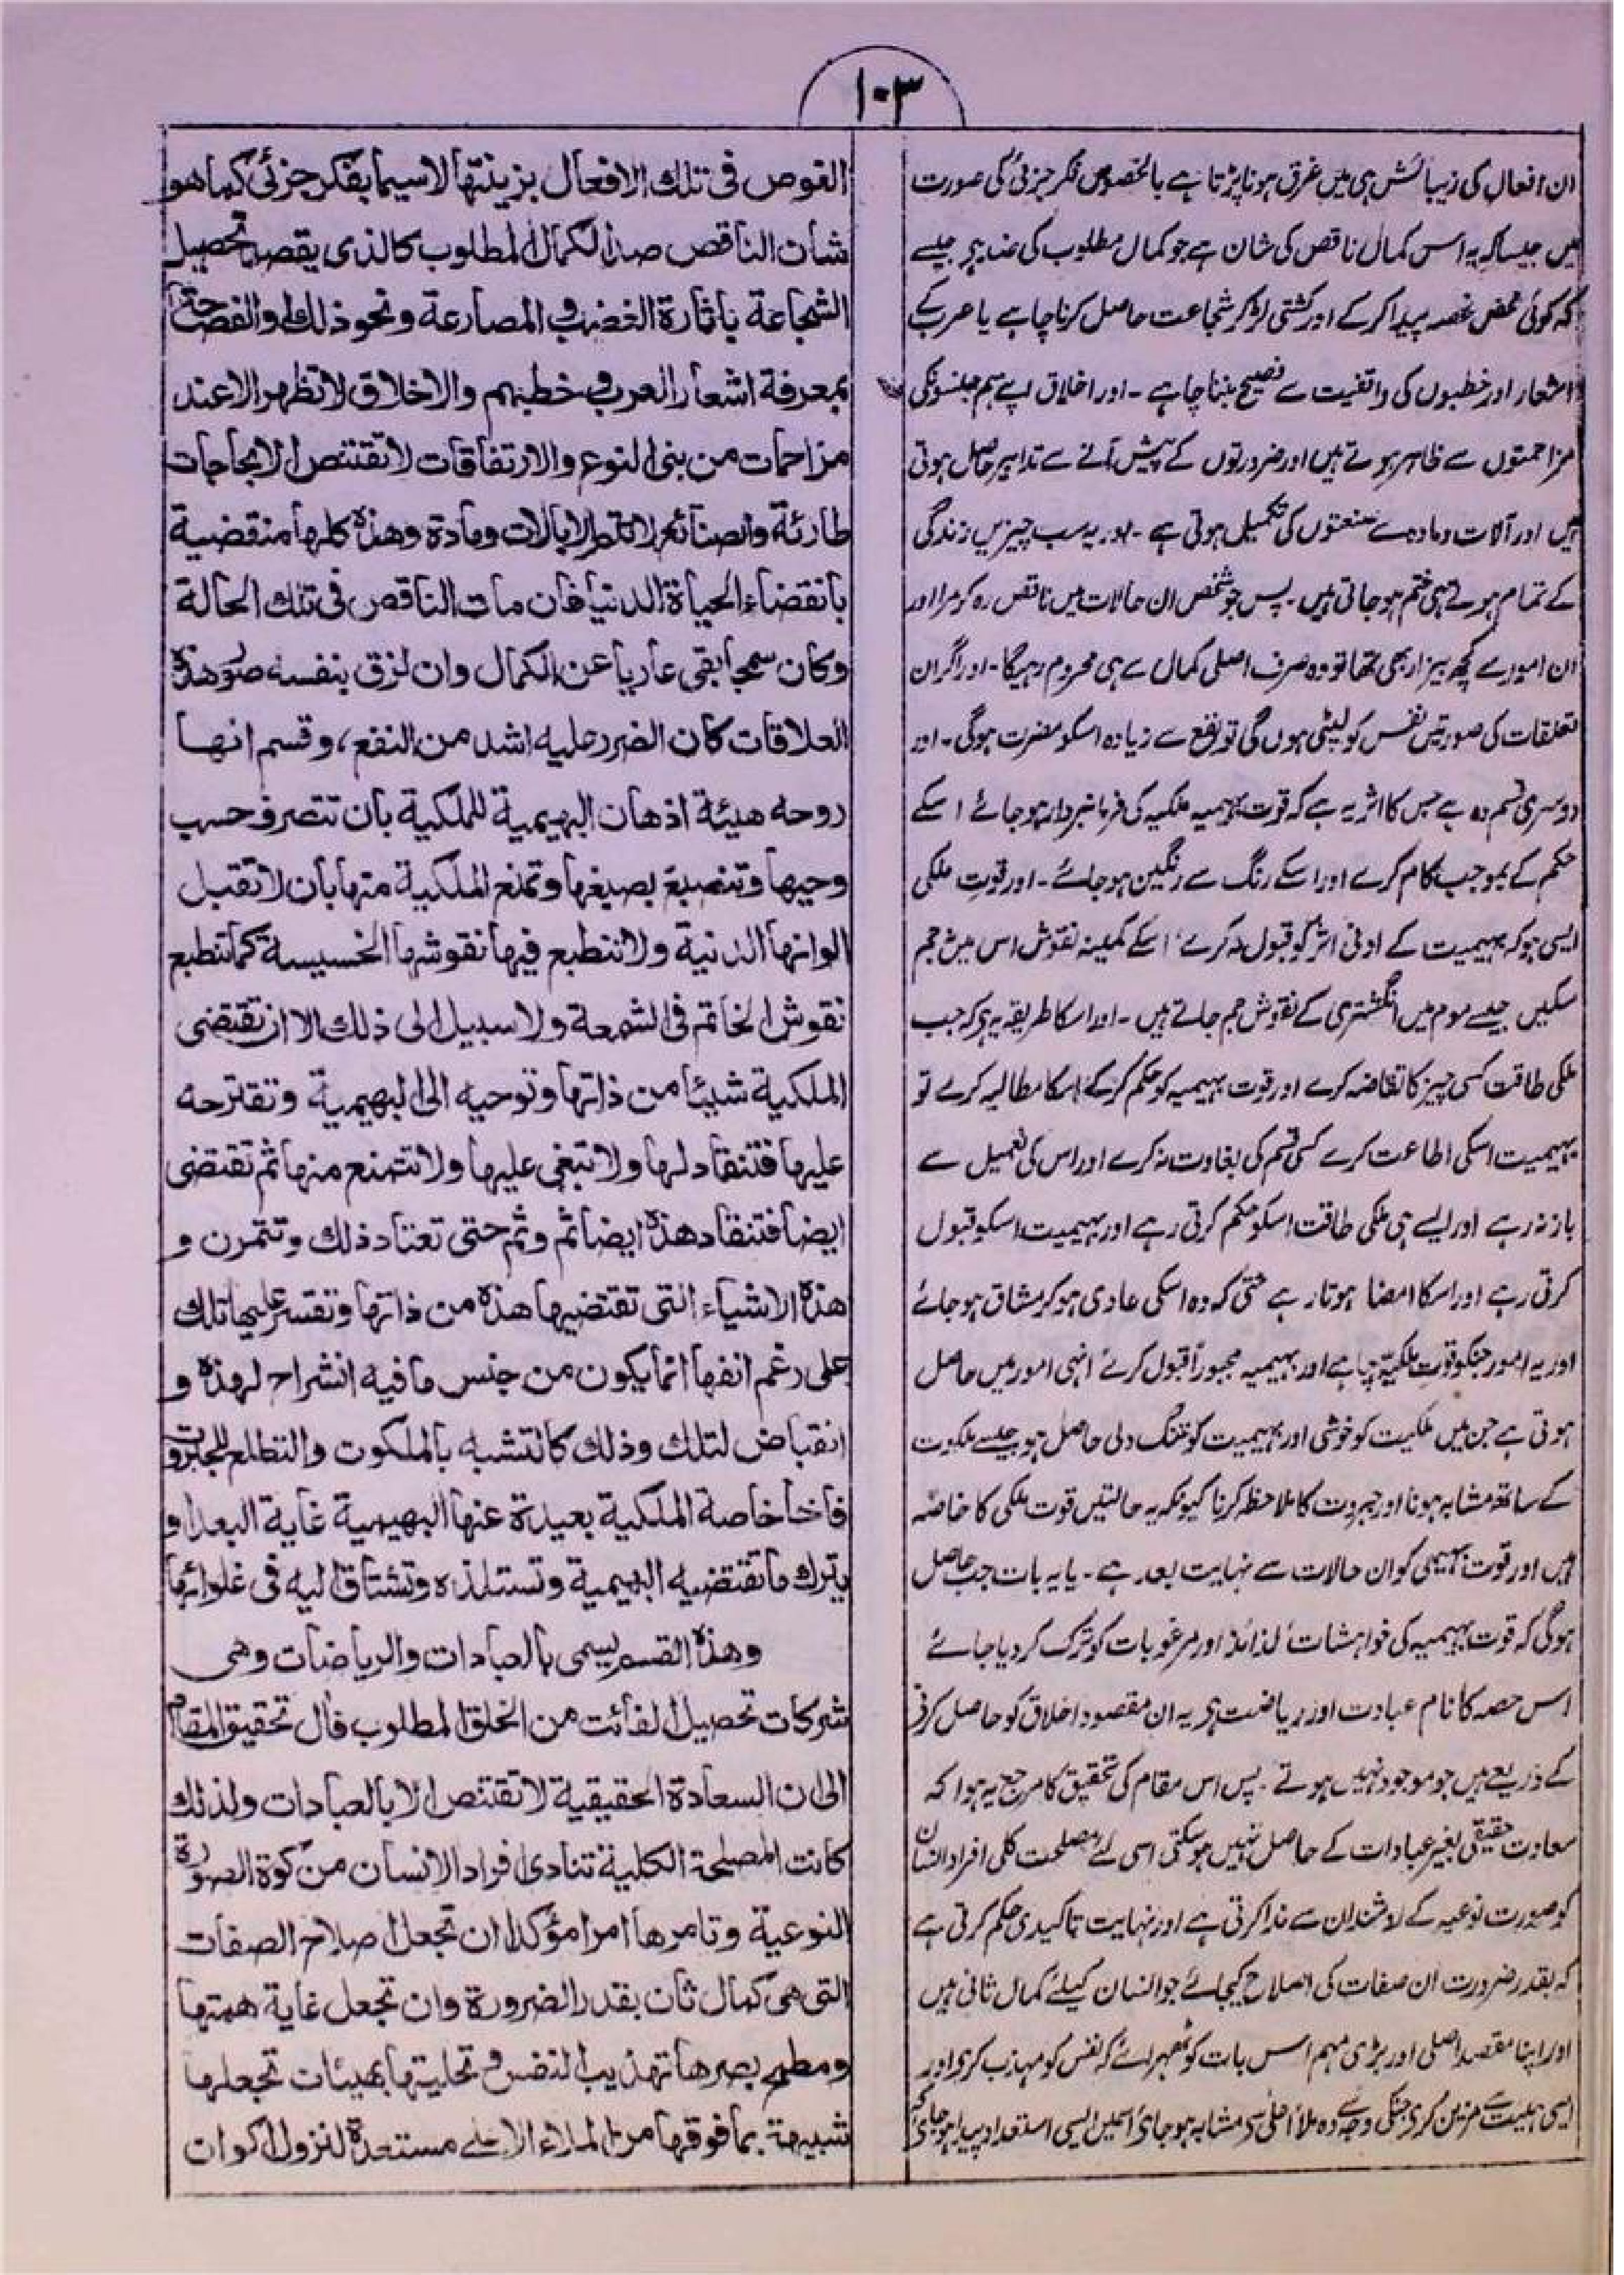 ۱۰۳
ان افعال کی زیبائش ہی میں غرق ہونا پڑتا ہے بالخصوص فکر جزئی کی صورت
میں جیسا کہ یہ اس کمال ناقص کی شان ہے جو کمال مطلوب کی ضد ہی جیسے
کہ کوئی محض غصہ پیدا کر کے اور کشتی لڑ کر شجاعت حاصل کرنا چاہے یا عرب کے
اشعار اور خطبوں کی واقفیت سے فصیح بننا چاہے ۔ اور اخلاق اپنے ہم جنسونکی
مزاحمتوں سے ظاہر ہوتے ہیں اور ضرورتوں کے پیش آنے سے تدابیر حاصل ہوتی
ہیں اور آلات و مادہ سے صنعتوں کی تکمیل ہوتی ہے ۔ اور یہ سب چیزیں زندگی
کے تمام ہوتے ہی ختم ہو جاتی ہیں ۔ پس جو شخص ان حالات میں ناقص رہ کر مرا اور
ان امور سے کچھ بیزار بھی تھا تو وہ صرف اصلی کمال سے ہی محروم رہیگا ۔ اور اگر ان
تعلقات کی صورتیں نفس کو لپٹی ہوں گی تو نفع سے زیادہ اسکو مضرت ہوگی ۔ اور
دوسری قسم وہ ہے جس کا اثر یہ ہے کہ قوت بہیمیہ ملکیہ کی فرمانبردار ہو جائے اسکے
حکم کے بموجب کام کرے اور اسکے رنگ سے رنگین ہو جائے ۔ اور قوت ملکی
ایسی ہو کہ بہیمیت کے ادنی اثر کو قبول نہ کرے ، اسکے کمینہ نقوش اس میں جم
سکیں جیسے موم میں انگشتری کے نقوش جم جاتے ہیں ۔ اور اسکا طریقہ یہ ہی کہ جب
ملکی طاقت کسی چیز کا تقاضہ کرے اور قوت بہیمیہ کو حکم کر کے اسکا مطالبہ کرے تو
بہیمیت اسکی اطاعت کرے کسی قسم کی بغاوت نہ کرے اور اس کی تعمیل سے
باز نہ رہے اور ایسے ہی ملکی طاقت اسکو حکم کرتی رہے اور بہیمیت اسکو قبول
کرتی رہے اور اسکا امضا ہوتا رہے حتی کہ وہ اسکی عادی ہو کر مشاق ہو جائے
اور یہ امور جنکو قوت ملکیہ چاہے اور بہیمیہ مجبوراً قبول کرے انہی امور میں حاصل
ہوتی ہے جن میں ملکیت کو خوشی اور بہیمیت کو تنگ دلی حاصل ہو جیسے ملکوت
کے ساتھ مشابہ ہونا اور جبروت کا ملاحظہ کرنا کیونکہ یہ حالتیں قوت ملکی کا خاصہ
ہیں اور قوت بہیمی کو ان حالات سے نہایت بعد ہے ۔ یا یہ بات جب حاصل
ہوگی کہ قوت بہیمیہ کی خواہشات لذائذ اور مرغوبات کو ترک کر دیا جائے
اس حصہ کا نام عبادت اور ریاضت ہی یہ ان مقصود اخلاق کو حاصل کرنی
کے ذریعے ہیں جو موجود نہیں ہوتے ۔ پس اس مقام کی تحقیق کا مرجع یہ ہوا کہ
سعادت حقیقی بغیر عبادات کے حاصل نہیں ہو سکتی اسی لئے مصلحت کلی افراد انسان
کو صورت نوعیہ کے روشندان سے ندا کرتی ہے اور نہایت تاکیدی حکم کرتی ہے
کہ بقدر ضرورت ان صفات کی اصلاح کیجائے جو انسان کیلئے کمال ثانی ہیں
اور اپنا مقصد اصلی اور بڑی مہم اس بات کو ٹھہرائے کہ نفس کو مہذب کری اور
ایسی ہیئت سے مزین کری جنکی وجہ سے وہ ملأ اعلی سے مشابہ ہو جائے اسمیں ایسی استعداد پیدا ہو جائے کہ
الغوص فی تلك الافعال بزینتها لاسیما بفکر جزئی کما هو
شان الناقص ضد الکمال المطلوب کالذی یقصد تحصیل
الشجاعة باثارة الغضب و المصارعة ونحو ذلك او الفصاحة
بمعرفة اشعار العرب و خطبهم والاخلاق لاتظهر الاعند
مزاحمات من بنی النوع والارتفاقات لاتقتنص الابحاجات
طارئة والصنائع لاتتم الابالات ومادة وهذه کلها منقضیة
بانقضاء الحیاة الدنیا فان مات الناقص فی تلك الحالة
وکان سمجا بقی عاریا عن الکمال وان لزق بنفسه صور هذه
العلاقات کان الضرر علیه اشد من النفع، وقسم انها
روحه هیئة اذهان البهیمیة للملکیة بان تتصرف حسب
وحیها وتنصبغ بصبغها وتمنع الملکیة منها بان لاتقبل
الوانها الدنیة ولاتنطبع فیها نقوشها الخسیسة کماتنطبع
نقوش الخاتم فی الشمعة ولا سبیل الی ذلك الا ان تقتضی
الملکیة شیئا من ذاتها وتوحیه الی البهیمیة وتقترحه
علیها فتنقاد لها ولا تبغی علیها ولاتتمنع منها ثم تقتضی
ایضا فتنقاد هذه ایضا ثم وثم حتی تعتاد ذلك وتتمرن و
هذه الاشیاء التی تقتضیها هذه من ذاتها وتقسر علیها تلك
علی رغم انفها انما یکون من جنس مافیه انشراح لهذه و
انقباض لتلك وذلك کالتشبه بالملکوت والتطلع للجبروت
فانها خاصة الملکیة بعیدة عنها البهیمیة غایة البعد او
یترك ماتقتضیه البهیمیة وتستلذه وتشتاق الیه فی غلوائها
وهذا القسم یسمی بالعبادات والریاضات وهی
شرکات تحصیل الفائت من الخلق المطلوب فال تحقیق المقام
الی ان السعادة الحقیقیة لاتقتنص الا بالعبادات ولذلك
کانت المصلحة الکلیة تنادی افراد الانسان من کوة الصورة
النوعیة وتامرها امرا مؤکدا ان تجعل اصلاح الصفات
التی هی کمال ثان بقدر الضرورة وان تجعل غایة همتها
ومطمح بصرها تهذیب النفس و تحلیتها بهیئات تجعلها
شبیهة بمافوقها من الملاء الاعلے مستعدة لنزول اکوان